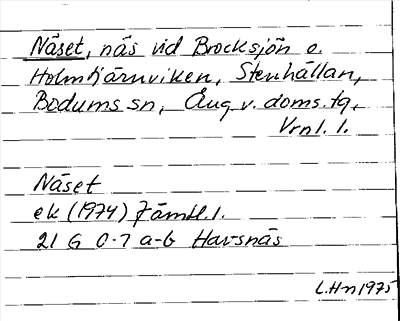 Näset, näs vid Brocksjön o.
Holmtjärnviken, Stenhällan,
Bodums sn, Ång. v. doms. tg,
Vrnl. l.
Näset
ek (1974) Jämtl. l.
21 G 0-7 a-b Havsnäs
L.Hn 1975